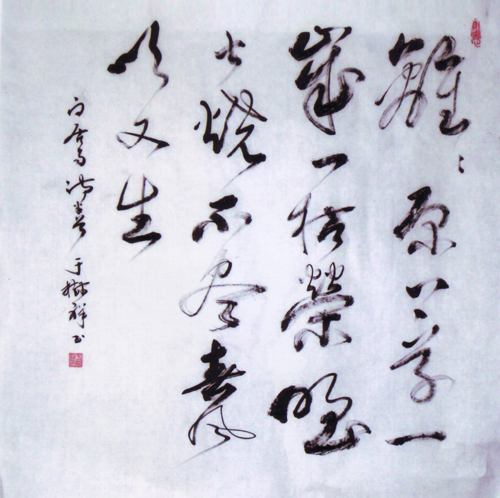 離〻原上草一
歲一枯榮野
火燒不盡春風
吹又生
白居易 于樹祥书